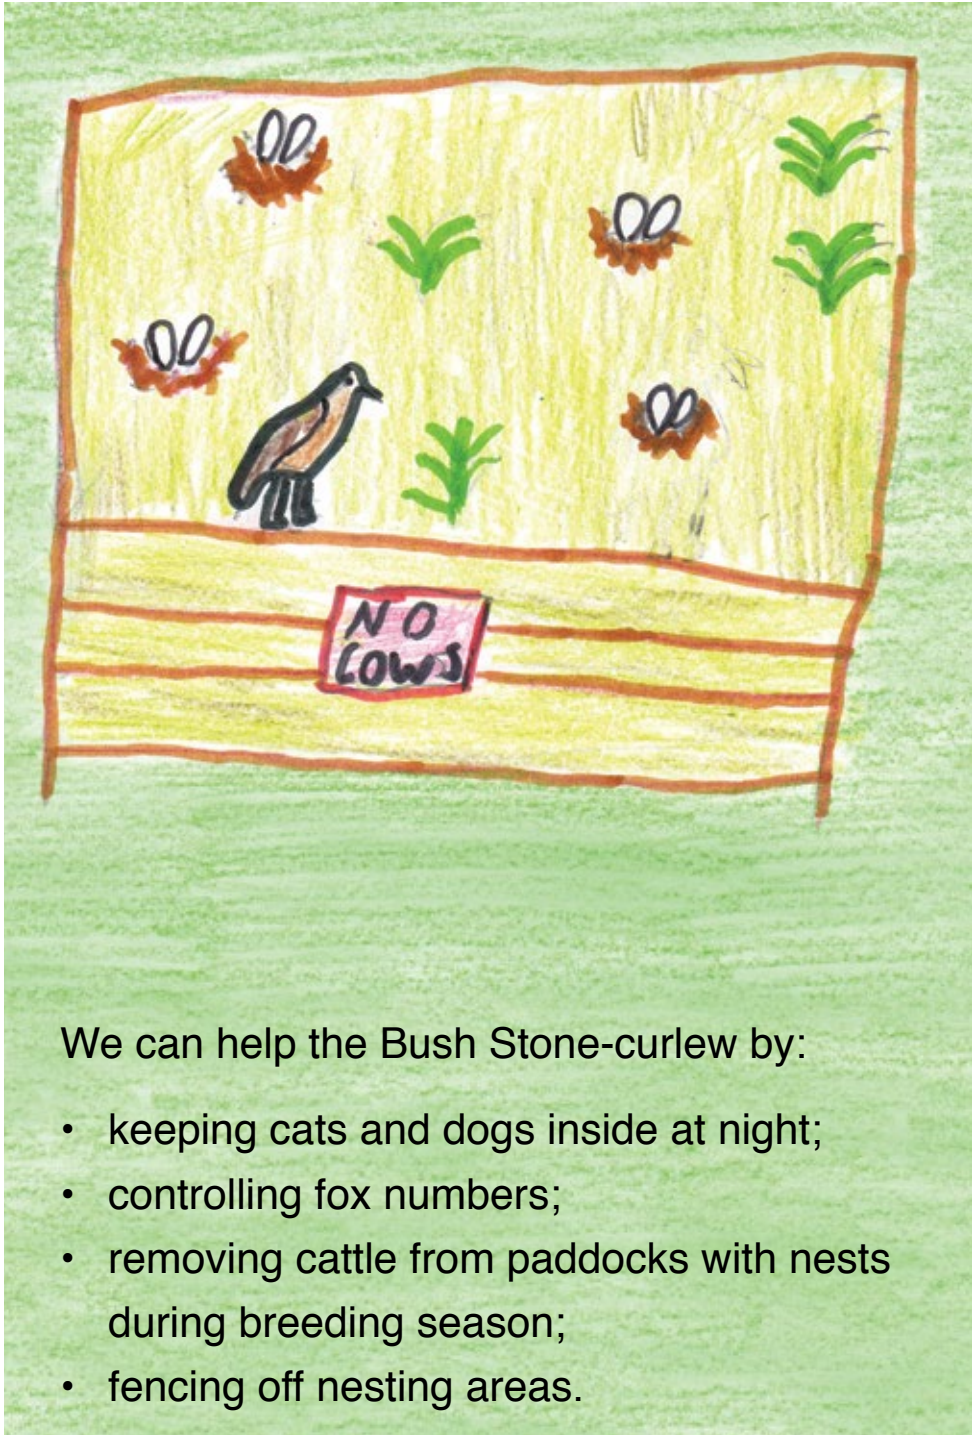 NO
COWS
We can help the Bush Stone-curlew by:
• keeping cats and dogs inside at night;
• controlling fox numbers;
• removing cattle from paddocks with nests
during breeding season;
• fencing off nesting areas.